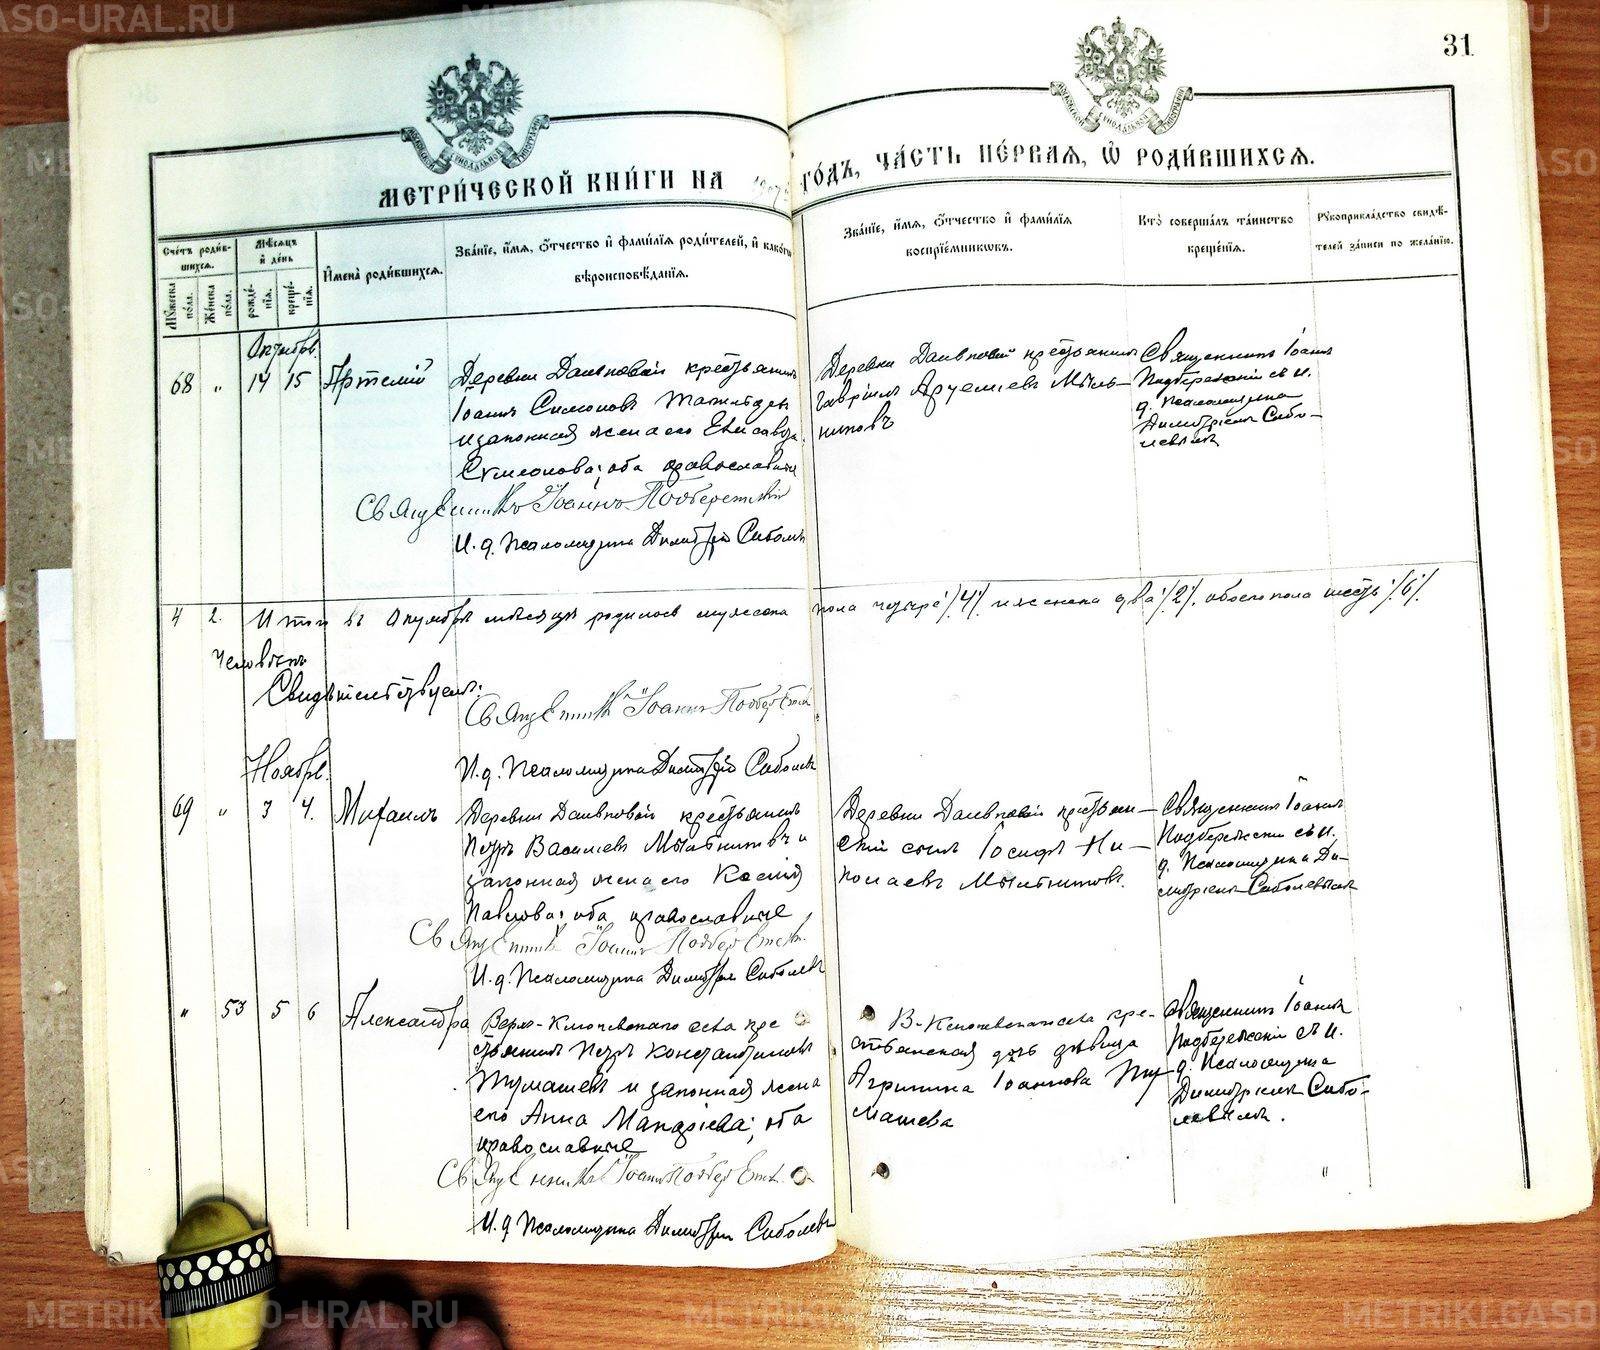 METRIKI.GASO-URAL.RU
31
МЕТРИ́ЧЕСКОЙ КНИ́ГИ НА 1907 ГО́ДЪ, ЧА́СТЬ ПЕ́РВАЯ, Ѡ РОДИ́ВШИХСЯ.
Сче́тъ роди́вшихся.
Мꙋ́жеска по́ла.
Же́нска по́ла.
Мѣ́сяцъ и҆ де́нь
рожде́нїя.
креще́нїя.
И҆мена̀ роди́вшихся.
Зва́нїе, и҆́мя, ѻ҆́тчество и҆ фами́лїя роди́телей, и҆ како́гѡ
вѣроисповѣ́данїя.
Зва́нїе, и҆́мя, ѻ҆́тчество и҆ фами́лїя
воспрїе́мникѡвъ.
Кто̀ соверша́лъ та́инство
креще́нїя.
Рꙋкоприкла́дство свидѣ́-
телей за́писи по жела́нїю.
Октябрь.
68 " 14 15 Артемій
Деревни Далековой крестьянинъ
Іоаннъ Симоновъ
и законная жена его Елисавета
Симеонова; оба православные
Священникъ Іоаннъ Подбережскій
И. д. Псаломщика Димитрій Соболевъ
Деревни Далековой крестьянинъ
Гавріилъ Мыль-
никовъ
Священникъ Іоаннъ
Подбережскій съ и.
д. Псаломщика
Димитріемъ Собо-
левымъ
4 2. Итого въ Октябрѣ мѣсяцѣ родилось мужеска пола четыре /4/ и женска два /2/, обоего пола шесть /6/.
Человѣкъ
Свидѣтельствуемъ:
Священникъ Іоаннъ Подбережскій
И. д. Псаломщика Димитрій Соболевъ
Ноябрь.
69 " 3 4. Михаилъ
Деревни Далековой крестьянинъ
Петръ Василіевъ Мыльниковъ и
законная жена его Ксенія
Павлова; оба православные
Священникъ Іоаннъ Подбережскій
И. д. Псаломщика Димитрій Соболевъ
Деревни Далековой крестьян-
скій сынъ Іосифъ Ни-
колаевъ Мыльниковъ.
Священникъ Іоаннъ
Подбережскій съ и.
д. Псаломщика Ди-
митріемъ Соболевымъ
" 53 5 6 Александра
Верхъ-Ключевскаго села кре
стьянинъ Петръ Константиновъ
Тумашевъ и законная жена
его Анна; оба
православные
Священникъ Іоаннъ Подбережскій
И. д. Псаломщика Димитрій Соболевъ
В-Ключевскаго села кре-
стьянская дочь дѣвица
Агрипина Іоаннова Ту-
машева
Священникъ Іоаннъ
Подбережскій съ и.
д. Псаломщика
Димитріемъ Собо-
левымъ.
"
METRIKI.GASO-URAL.RU